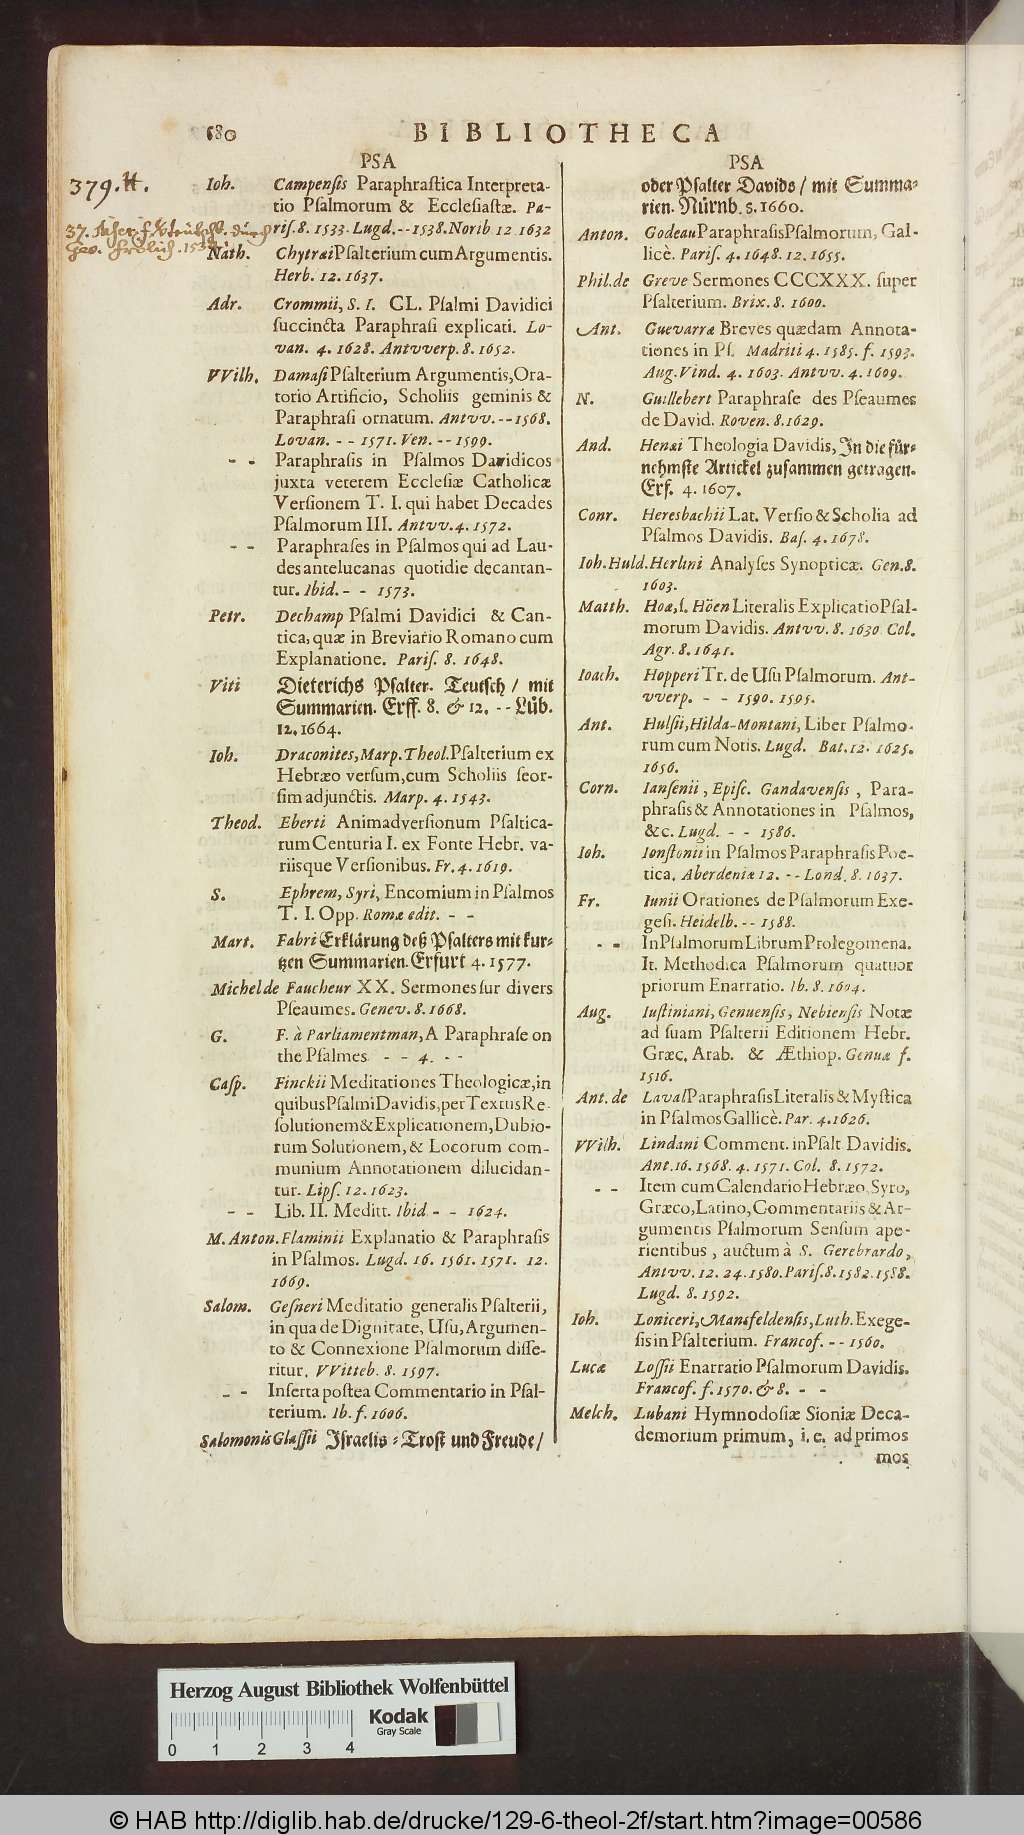 680
BIBLIOTHECA
PSA
379. H.
Ioh. Campensis Paraphrastica Interpreta-
tio Psalmorum & Ecclesiastæ. Pa-
ris. 8. 1533. Lugd. -- 1538. Norib 12 1632
Geo. Frölich. 153
Nath. Chytræi Psalterium cum Argumentis.
Herb. 12. 1637.
Adr. Crommii, S. I. CL. Psalmi Davidici
succincta Paraphrasi explicati. Lo-
van. 4. 1628. Antvverp. 8. 1652.
VVilh. Damasi Psalterium Argumentis, Ora-
torio Artificio, Scholiis geminis &
Paraphrasi ornatum. Antvv. -- 1568.
Lovan. -- 1571. Ven. -- 1599.
-- Paraphrasis in Psalmos Davidicos
juxta veterem Ecclesiæ Catholicæ
Versionem T. I. qui habet Decades
Psalmorum III. Antvv. 4. 1572.
-- Paraphrases in Psalmos qui ad Lau-
des antelucanas quotidie decantan-
tur. Ibid. -- 1573.
Petr. Dechamp Psalmi Davidici & Can-
tica, quæ in Breviario Romano cum
Explanatione. Paris. 8. 1648.
Viti Dieterichs Psalter. Teutsch / mit
Summarien. Erff. 8. & 12. -- Lüb.
12. 1664.
Ioh. Draconites, Marp. Theol. Psalterium ex
Hebræo versum, cum Scholiis seor-
sim adjunctis. Marp. 4. 1543.
Theod. Eberti Animadversionum Psaltica-
rum Centuria I. ex Fonte Hebr. va-
riisque Versionibus. Fr. 4. 1619.
S. Ephrem, Syri, Encomium in Psalmos
T. I. Opp. Romæ edit. --
Mart. Fabri Erklärung deß Psalters mit kur-
tzen Summarien. Erfurt 4. 1577.
Michel de Faucheur XX. Sermones sur divers
Pseaumes. Genev. 8. 1668.
G. F. à Parliamentman, A Paraphrase on
the Psalmes -- 4. --
Casp. Finckii Meditationes Theologicæ, in
quibus Psalmi Davidis, per Textus Re-
solutionem & Explicationem, Dubio-
rum Solutionem, & Locorum com-
munium Annotationem dilucidan-
tur. Lips. 12. 1623.
-- Lib. II. Meditt. Ibid -- 1624.
M. Anton. Flaminii Explanatio & Paraphrasis
in Psalmos. Lugd. 16. 1561. 1571. 12.
1669.
Salom. Gesneri Meditatio generalis Psalterii,
in qua de Dignitate, Usu, Argumen-
to & Connexione Psalmorum disse-
ritur. VVitteb. 8. 1597.
-- Inserta postea Commentario in Psal-
terium. Ib. f. 1606.
Salomonis Glassii Israelis-Trost und Freude /
PSA
oder Psalter Davids / mit Summa-
rien. Nürnb. 8. 1660.
Anton. Godeau Paraphrasis Psalmorum, Gal-
licè. Paris. 4. 1648. 12. 1655.
Phil. de Greve Sermones CCCXXX. super
Psalterium. Brix. 8. 1600.
Ant. Guevarræ Breves quædam Annota-
tiones in Ps. Madriti 4. 1585. f. 1593.
Aug. Vind. 4. 1603. Antvv. 4. 1609.
N. Guillebert Paraphrase des Pseaumes
de David. Roven. 8. 1629.
And. Henæi Theologia Davidis, In die für-
nehmste Artickel zusammen getragen.
Erf. 4. 1607.
Conr. Heresbachii Lat. Versio & Scholia ad
Psalmos Davidis. Bas. 4. 1678.
Ioh. Huld. Herlini Analyses Synopticæ. Gen. 8.
1603.
Matth. Hoæ, s. Höen Literalis Explicatio Psal-
morum Davidis. Antvv. 8. 1630 Col.
Agr. 8. 1641.
Ioach. Hopperi Tr. de Usu Psalmorum. Ant-
vverp. -- 1590. 1595.
Ant. Hulsii, Hilda-Montani, Liber Psalmo-
rum cum Notis. Lugd. Bat. 12. 1625.
1656.
Corn. Iansenii, Episc. Gandavensis, Para-
phrasis & Annotationes in Psalmos,
&c. Lugd. -- 1586.
Ioh. Ionstonii in Psalmos Paraphrasis Poe-
tica. Aberdeniæ 12. -- Lond. 8. 1637.
Fr. Iunii Orationes de Psalmorum Exe-
gesi. Heidelb. -- 1588.
-- In Psalmorum Librum Prolegomena.
It. Methodica Psalmorum quatuor
priorum Enarratio. Ib. 8. 1604.
Aug. Iustiniani, Genuensis, Nebiensis Notæ
ad suam Psalterii Editionem Hebr.
Græc. Arab. & Æthiop. Genuæ f.
1516.
Ant. de Laval Paraphrasis Literalis & Mystica
in Psalmos Gallicè. Par. 4. 1626.
VVilh. Lindani Comment. in Psalt Davidis.
Ant. 16. 1568. 4. 1571. Col. 8. 1572.
-- Item cum Calendario Hebræo, Syro,
Græco, Latino, Commentariis & Ar-
gumentis Psalmorum Sensum ape-
rientibus, auctum à S. Gerebrardo,
Antvv. 12. 24. 1580. Paris. 8. 1582. 1588.
Lugd. 8. 1592.
Ioh. Loniceri, Mansfeldensis, Luth. Exege-
sis in Psalterium. Francof. -- 1560.
Lucæ Lossii Enarratio Psalmorum Davidis.
Francof. f. 1570. & 8. --
Melch. Lubani Hymnodosiæ Sioniæ Deca-
demorium primum, i. e. ad primos
mos
Herzog August Bibliothek Wolfenbüttel
Kodak
Gray Scale
0 1 2 3 4
© HAB http://diglib.hab.de/drucke/129-6-theol-2f/start.htm?image=00586